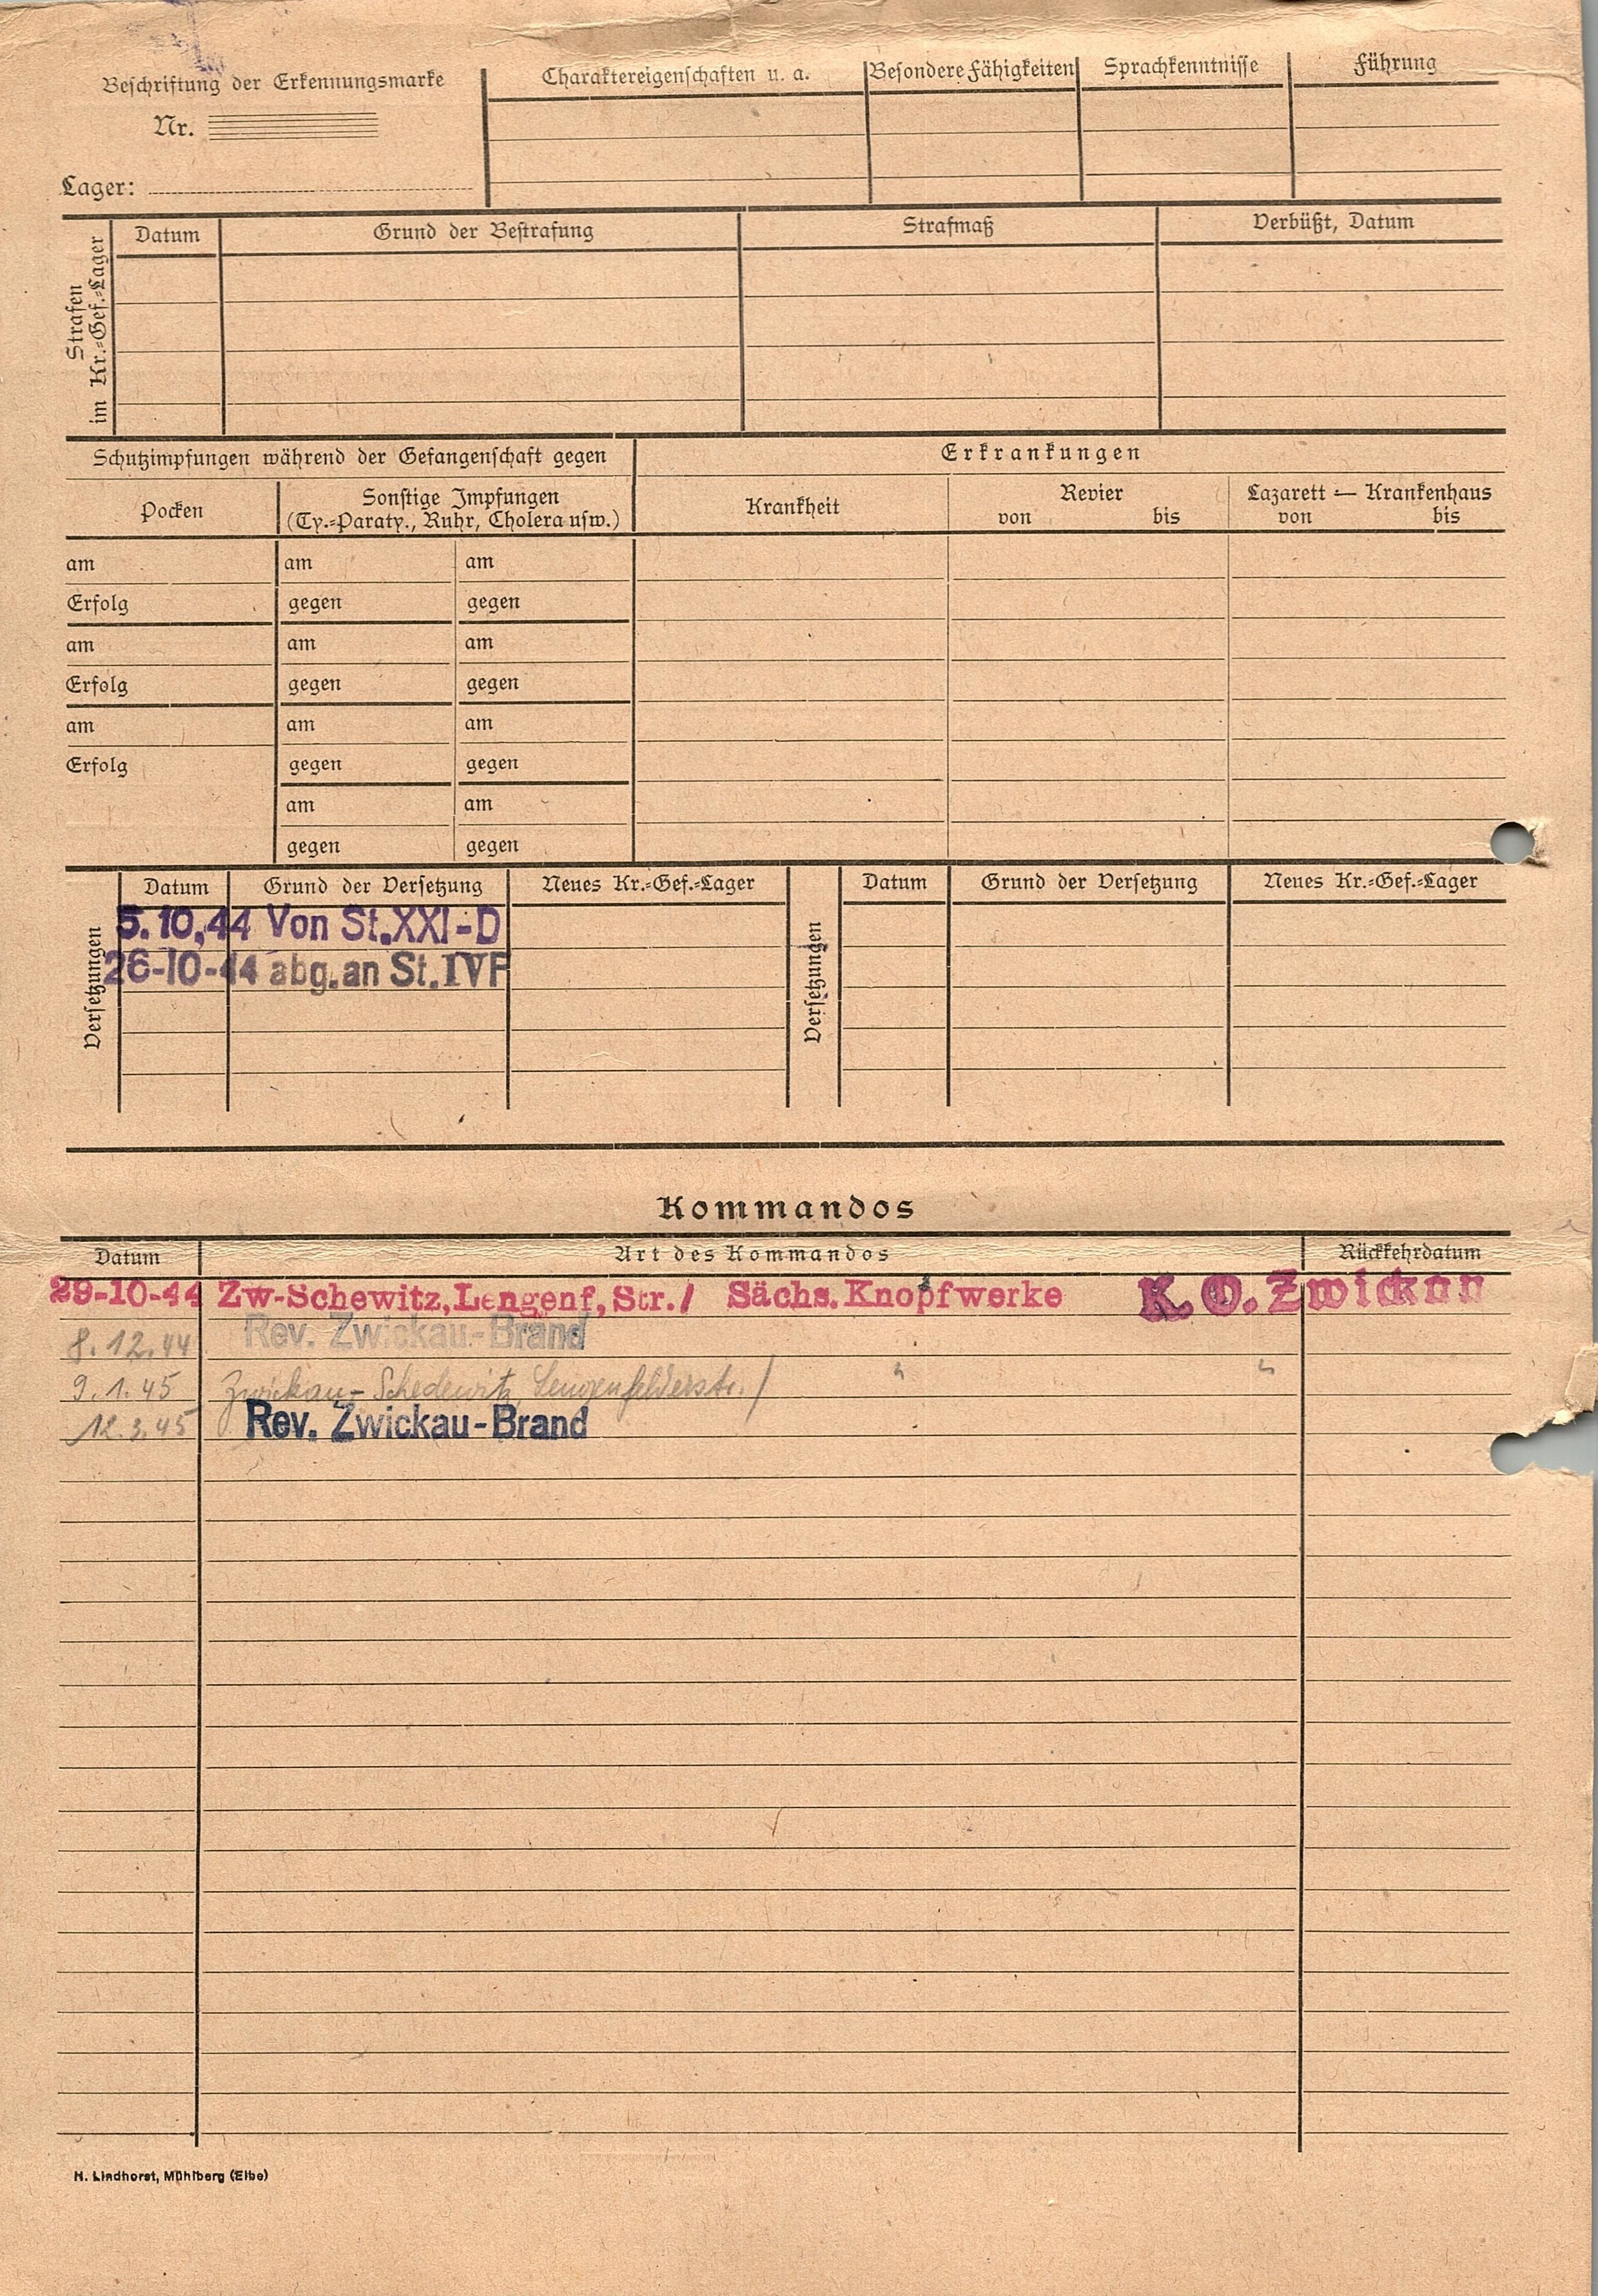 Beschriftung der Erkennungsmarke
Nr.
Lager:
Charaktereigenschaften u. a.
Besondere Fähigkeiten
Sprachkenntnisse
Führung
Strafen
im Kr.=Gef.=Lager
Datum
Grund der Bestrafung
Strafmaß
Verbüßt, Datum
Schutzimpfungen während der Gefangenschaft gegen
Erkrankungen
Pocken
Sonstige Impfungen
(Ty.=Paraty., Ruhr, Cholera usw.)
Krankheit
Revier
von bis
Lazarett — Krankenhaus
von bis
am am am
Erfolg gegen gegen
am am am
Erfolg gegen gegen
am am am
Erfolg gegen gegen
am am
gegen gegen
Versetzungen
Datum Grund der Versetzung Neues Kr.=Gef.=Lager
5.10,44 Von St.XXI-D
26-10-44 abg.an St.IVF
Versetzungen
Datum Grund der Versetzung Neues Kr.=Gef.=Lager
Kommandos
Datum Art des Kommandos Rückkehrdatum
29-10-44 Zw-Schewitz,Lengenf,Str./ Sächs.Knopfwerke K.O.Zwickau
8.12.44 Rev. Zwickau-Brand
9.1.45 Zwickau-Schedewitz, Lengenfelderstr./ " "
12.3.45 Rev. Zwickau-Brand
H. Lindhorst, Mühlberg (Elbe)